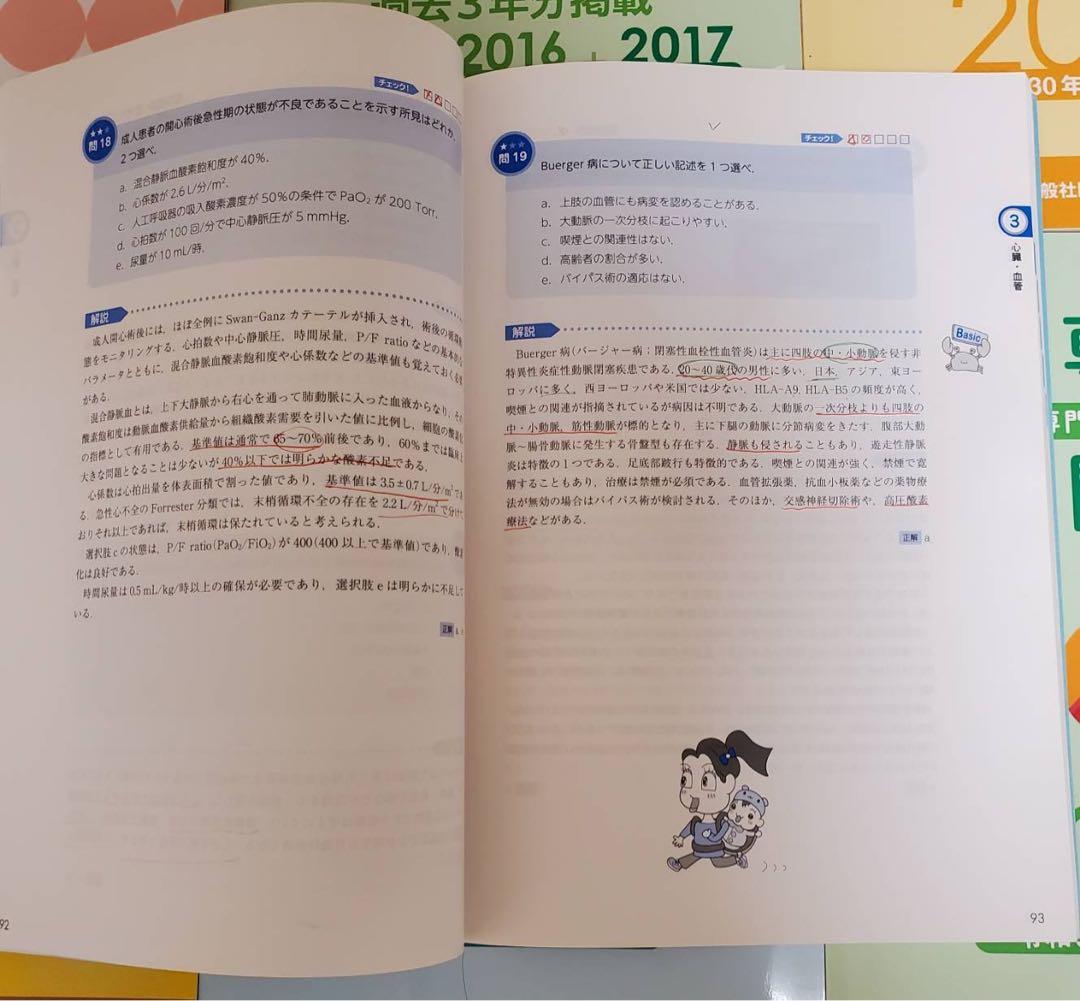 過去3年分掲載
2016
2017
20
30年
般社団
チェック!
問18
成人患者の開心術後急性期の状態が不良であることを示す所見はどれか.
2つ選べ.
a. 混合静脈血酸素飽和度が40%.
b. 心係数が2.6 L/分/m².
c. 人工呼吸器の吸入酸素濃度が50%の条件でPaO₂が200 Torr.
d. 心拍数が100回/分で中心静脈圧が5 mmHg.
e. 尿量が10 mL/時.
解説
成人開心術後には, ほぼ全例にSwan-Ganzカテーテルが挿入され, 術後の循環
態をモニタリングする. 心拍数や中心静脈圧, 時間尿量, P/F ratioなどの基本的な
パラメータとともに, 混合静脈血酸素飽和度や心係数などの基準値も覚えておく必要
がある.
混合静脈血とは, 上下大静脈から右心を通って肺動脈に入った血液からなり, その
酸素飽和度は動脈血酸素供給量から組織酸素需要を引いた値に比例し, 細胞の酸素化
の指標として有用である. 基準値は通常で65~70%前後であり, 60%までは臨床上
大きな問題となることは少ないが40%以下では明らかな酸素不足である.
心係数は心拍出量を体表面積で割った値であり, 基準値は3.5±0.7 L/分/m²であ
る. 急性心不全のForrester分類では, 末梢循環不全の存在を2.2 L/分/m²で分けて
おりそれ以上であれば, 末梢循環は保たれていると考えられる.
選択肢cの状態は, P/F ratio(PaO₂/FiO₂)が400(400以上で基準値)であり, 酸素
化は良好である.
時間尿量は0.5 mL/kg/時以上の確保が必要であり, 選択肢eは明らかに不足して
いる.
正解 a
92
チェック!
問19
Buerger病について正しい記述を1つ選べ.
a. 上肢の血管にも病変を認めることがある.
b. 大動脈の一次分枝に起こりやすい.
c. 喫煙との関連性はない.
d. 高齢者の割合が多い.
e. バイパス術の適応はない.
解説
Buerger病(バージャー病;閉塞性血栓性血管炎)は主に四肢の中・小動脈を侵す非
特異性炎症性動脈閉塞疾患である. 20~40歳代の男性に多い. 日本, アジア, 東ヨー
ロッパに多く, 西ヨーロッパや米国では少ない. HLA-A9, HLA-B5の頻度が高く,
喫煙との関連が指摘されているが病因は不明である. 大動脈の一次分枝よりも四肢の
中・小動脈, 筋性動脈が標的となり, 主に下腿の動脈に分節病変をきたす. 腹部大動
脈~腸骨動脈に発生する骨盤型も存在する. 静脈も侵されることもあり, 遊走性静脈
炎は特徴の1つである. 足底部跛行も特徴的である. 喫煙との関連が強く, 禁煙で寛
解することもあり, 治療は禁煙が必須である. 血管拡張薬, 抗血小板薬などの薬物療
法が無効の場合はバイパス術が検討される. そのほか, 交感神経切除術や, 高圧酸素
療法などがある.
正解 a
Basic
3
心臓・血管
93
専門